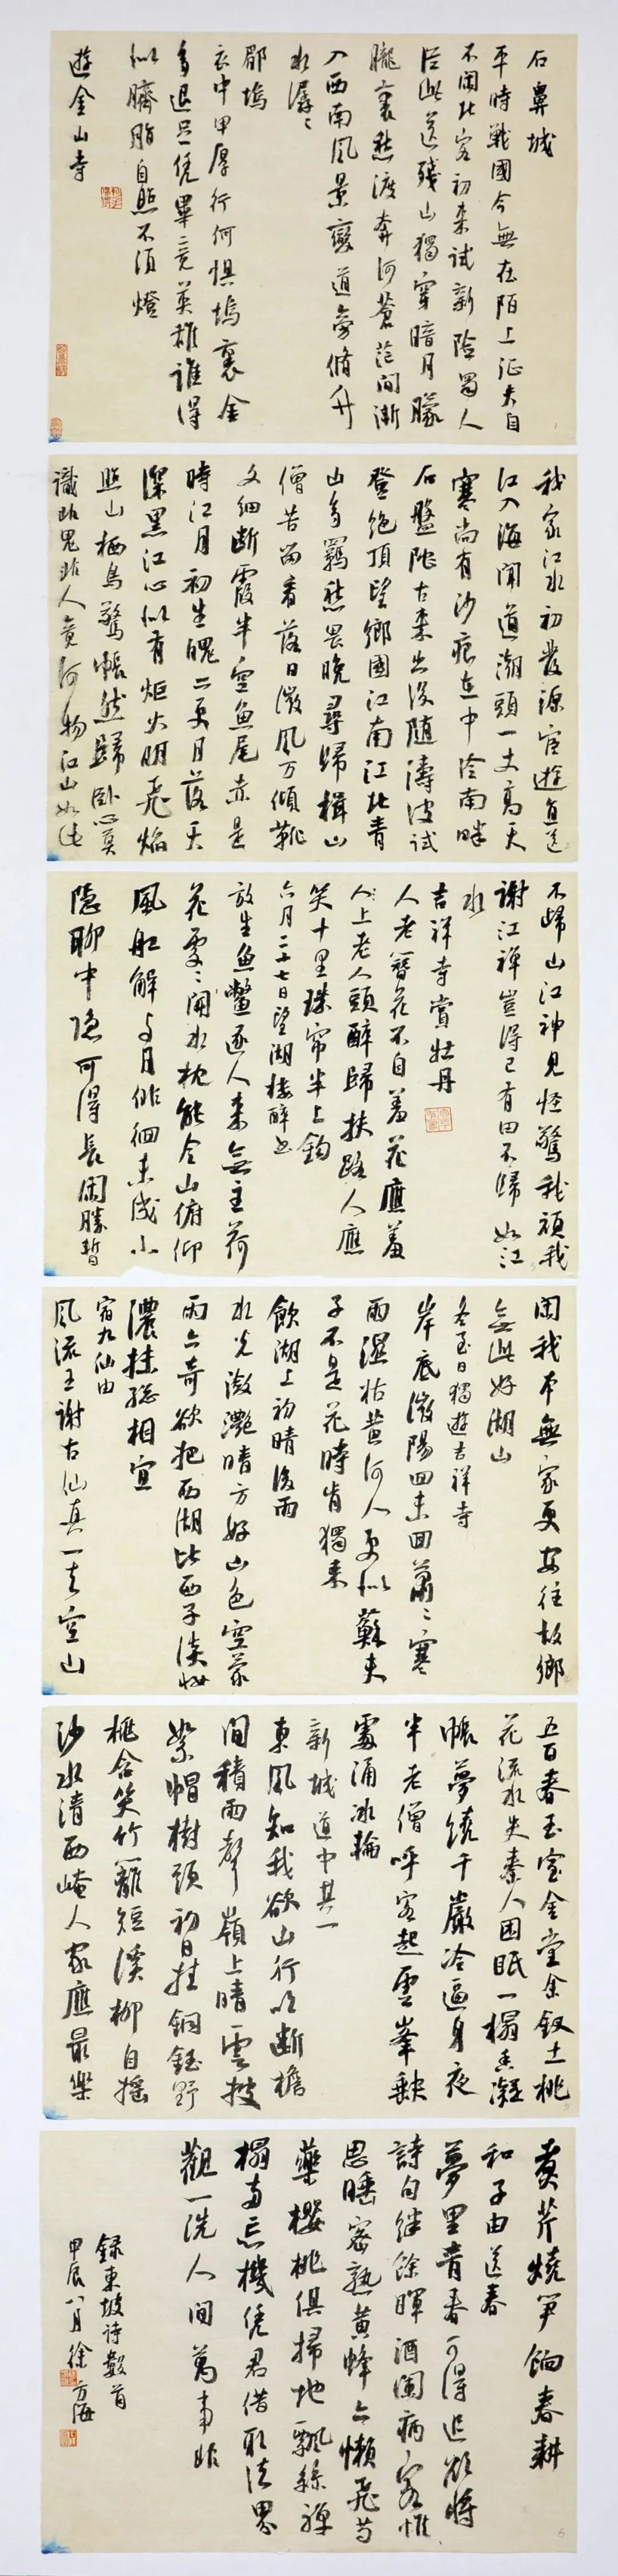 石鼻城
平時戰國今無在陌上征夫自
不閑北客初來試新險蜀人
從此送殘山獨穿暗月朦
朧裏愁渡奔河蒼茫間漸
入西南風景變道旁脩竹
水潺〻
郿塢
衣中甲厚行何懼塢裏金
多退足凭畢竟英雄誰得
似臍脂自照不須燈
遊金山寺
我家江水初發源宦遊直送
江入海聞道潮頭一丈高天
寒尚有沙痕在中泠南畔
石盤陀古來出沒隨濤波試
登絕頂望鄉國江南江北青
山多羈愁畏晚尋歸楫山
僧苦留看落日微風万傾靴
文細斷霞半空魚尾赤是
時江月初生魄二更月落天
深黑江心似有炬火明飛焰
照山栖鳥驚悵然歸臥心莫
識非鬼非人竟何物江山如此
不歸山江神見怪驚我頑我
謝江禪豈得已有田不歸如江
水
吉祥寺賞牡丹
人老簪花不自羞花應羞
人上老人頭醉歸扶路人應
笑十里珠帘半上鉤
六月二十七日望湖樓醉書
放生魚鱉逐人來無主荷
花處〻開水枕能令山俯仰
風船解與月俳徊未成小
隱聊中隱可得長閑勝暫
閑我本無家更安往故鄉
無此好湖山
冬至日獨遊吉祥寺
岸底微陽回未回蕭〻寒
雨濕枯荄何人更似蘇夫
子不是花時肯獨來
飲湖上初晴後雨
水光瀲灔晴方好山色空蒙
雨亦奇欲把西湖比西子淡妝
濃抹總相宜
宿九仙山
風流王謝古仙真一去空山
五百春玉室金堂余釵土桃
花流水失秦人困眠一榻香凝
帳夢繞千巖冷逼身夜
半老僧呼客起雲峯缺
處涌冰輪
新城道中其一
東風知我欲山行吹斷檐
間積雨聲嶺上晴雲披
絮帽樹頭初日挂銅鉦野
桃含笑竹籬短溪柳自搖
沙水清西崦人家應最樂
煮芹燒笋餉春耕
和子由送春
夢里青春可得追欲將
詩句絆餘暉酒闌病客惟
思睡蜜熟黃蜂亦懶飛芍
藥櫻桃俱掃地飄絲禪
榻兩忘機凭君借取法界
觀一洗人間萬事非
錄東坡詩數首
甲辰八月徐方海